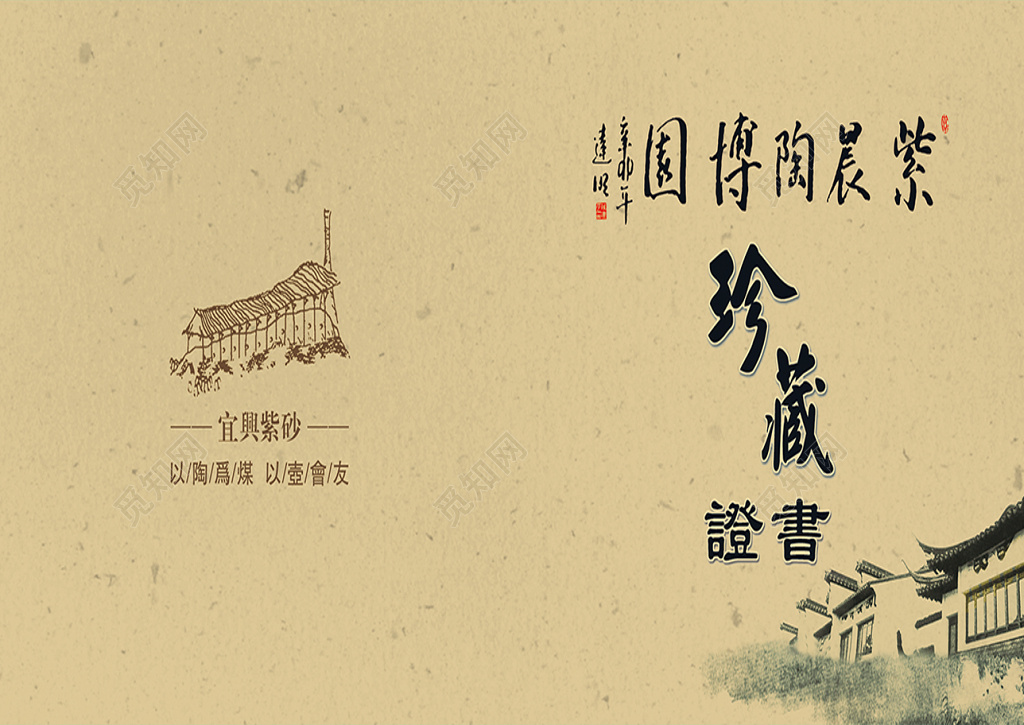 紫晨陶博園
辛卯年
達明
珍藏
證書
宜興紫砂
以/陶/爲/煤 以/壺/會/友
觅知网